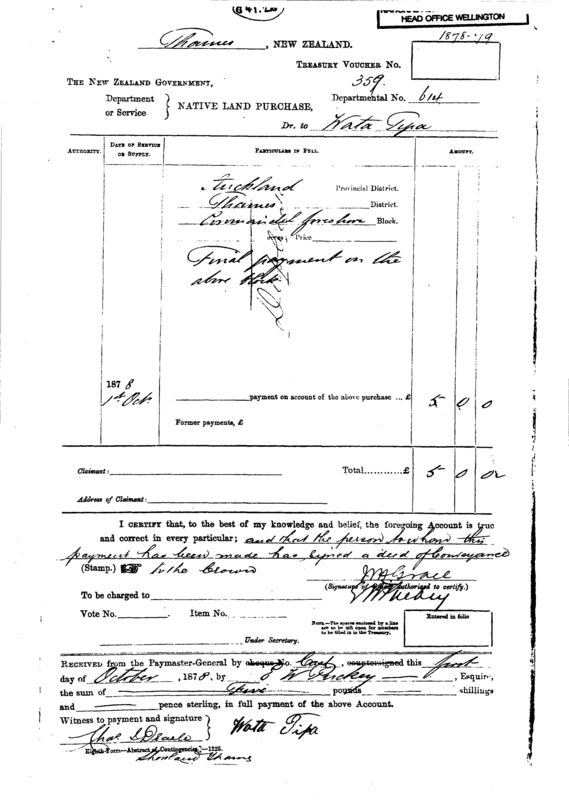 (841.20)
HEAD OFFICE WELLINGTON
1878-79
Thames, NEW ZEALAND.
TREASURY VOUCHER No.
359.
THE NEW ZEALAND GOVERNMENT,
Department or Service } NATIVE LAND PURCHASE, Departmental No. 614
Dr. to Wata Tipa
AUTHORITY. DATE OF SERVICE OR SUPPLY. PARTICULARS IN FULL. AMOUNT.
Auckland Provincial District.
Thames District.
Coromandel foreshore Block.
Acres; Price
Final payment on the
above block
1878
1st Oct. payment on account of the above purchase ... £ 5 0 0
Former payments, £
Claimant: Total............£ 5 0 0
Address of Claimant:
I CERTIFY that, to the best of my knowledge and belief, the foregoing Account is true
and correct in every particular; and that the person to whom this
payment has been made has signed a deed of Conveyance
(Stamp.) to the Crown
(Signature of Officer authorized to certify.)
To be charged to
Vote No. Item No.
NOTE.—The spaces enclosed by a line
are to be left open for numbers
to be filled in in the Treasury.
Entered in folio
Under Secretary.
RECEIVED from the Paymaster-General by cheque No. Cash, countersigned this first
day of October, 1878, by E W Puckey, Esquire,
the sum of Five pounds shillings
and pence sterling, in full payment of the above Account.
Witness to payment and signature }
Wata Tipa
Eighth Form—Abstract of Contingencies.—1225.
Shortland Thames